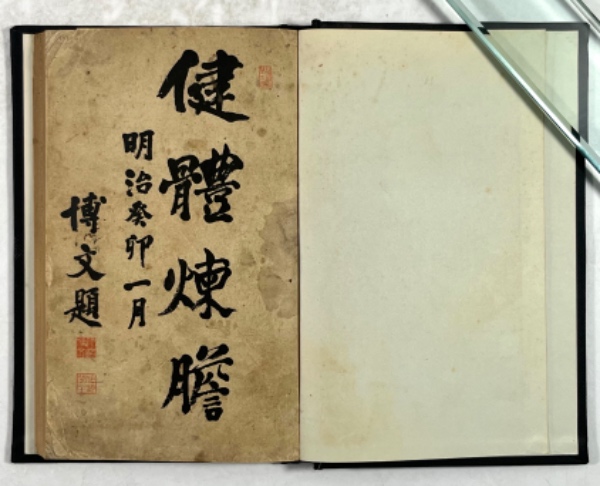 健體煉膽
明治癸卯一月
博文題